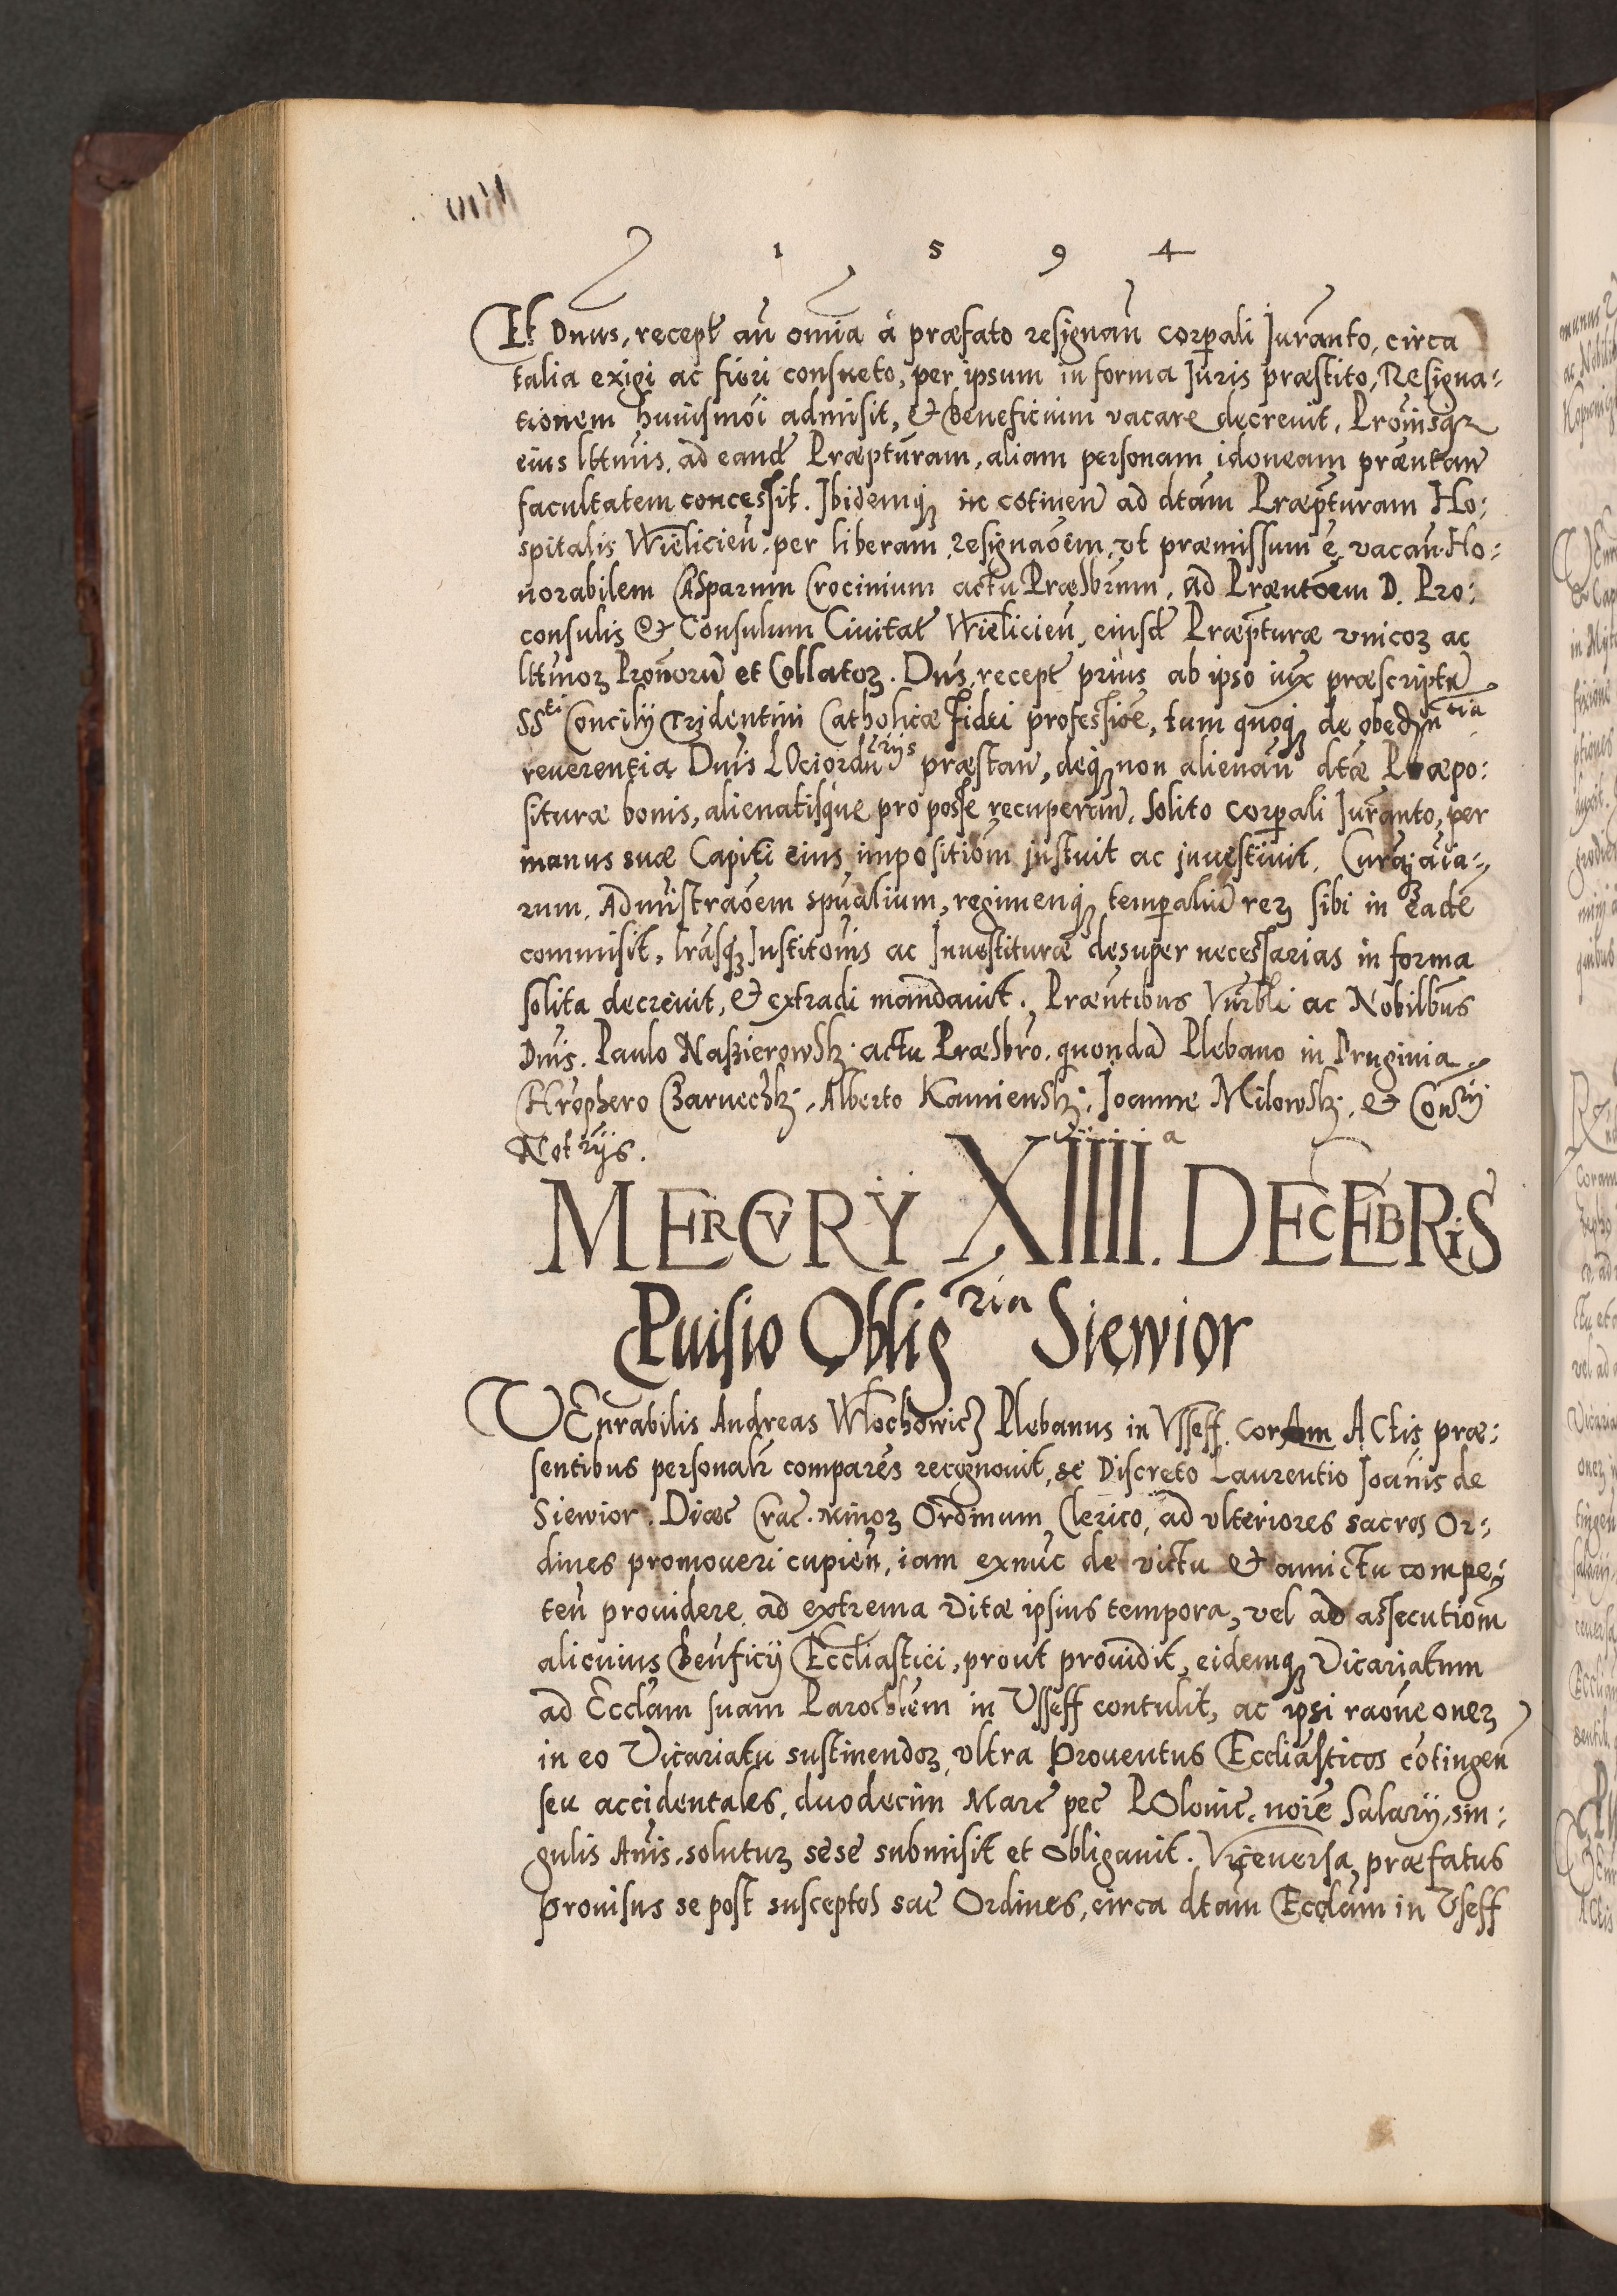 1 5 9 4
Et Dnus, recept añ omĩa à præfato resignañ corpali Jurañto, circa
talia exigi ac fieri consueto, per ipsum in forma Juris præstito, Resigna⸗
tionem huiusmõi admisit, & beneficium vacare decrevit, Provisqȝ
eius lttmis, ad eand Præpturam, aliam personam idoneam præntan
facultatem concessit. Ibidemqȝ in cotinen ad dtam Præpturam Ho⸗
spitalis Wielicień, per liberam resignaõem, vt præmissum ẽ, vacan Ho⸗
norabilem Casparum Crocinium actu Præsbrum, ad Præntõem D. Pro⸗
consulis & Consulum Civitat Wielicień, eiusd Præpturæ vnicoꝝ ac
lttmoꝝ Pronorũ et Collatoꝝ. Dns, recept prius ab ipso iux præscriptũ
SSti Concilij Tridentini Catholicæ Fidei professiõe, tum quoqȝ de obedntia
reverentia Dnis LOciordnrijs præstan, deqȝ non alienañ dtæ Præpo⸗
situræ bonis, alienatisque pro posse recuperan, solito corpali Jurañto, per
manus suæ Capiti eius impositiom instuit ac investivit, Curaqȝ aĩa⸗
rum, Administraõem spũalium, regimenqȝ temporaliũ reꝝ sibi in eade
commisit, lrãsqȝ Institõnis ac Investituræ desuper necessarias in forma
solita decrevit, & extradi mandavit. Præntibus Vnrbli ac Nobilbus
Dnis. Paulo Naszierowsk. actu Præsbro, quondã Plebano in Druginia,
Chrophero Czarnechk, Alberto Kamiensk, Joanne Milowsk, & Consrij
Notrijs.
MERCVRY XIIIIa. DECEBRiS
Puisio Obligria Siewior
VEnrabilis Andreas Włochowicz Plebanus in Vsseff coram Actis præ⸗
sentibus personalr comparẽs recognovit, se Discreto Laurentio Joãnis de
Siewior. Diœc Crac. minoꝝ Ordinum Clerico, ad vlteriores sacros Or⸗
dines promoveri cupień, iam exnũc de victu & amictu compe⸗
teń providere, ad extrema vitæ ipsius tempora, vel ad assecutiom
alicuius Beñficij Ecclĩastici, prout providit, eidemqȝ Vicariatum
ad Ecclam suam Parochlem in Vsseff contulit, ac ipsi raõne oneꝝ
in eo Vicariatu sustinendoꝝ, vltra proventus Ecclĩasticos cõtingeń
seu accidentales, duodecim Marc pec POlonic, noĩe Salarij, sin⸗
gulis Anis, solutuꝝ sese submisit et obligavit. Viceversa præfatus
provisus se post susceptos sac Ordines, circa dtam Ecclam in Vsseff